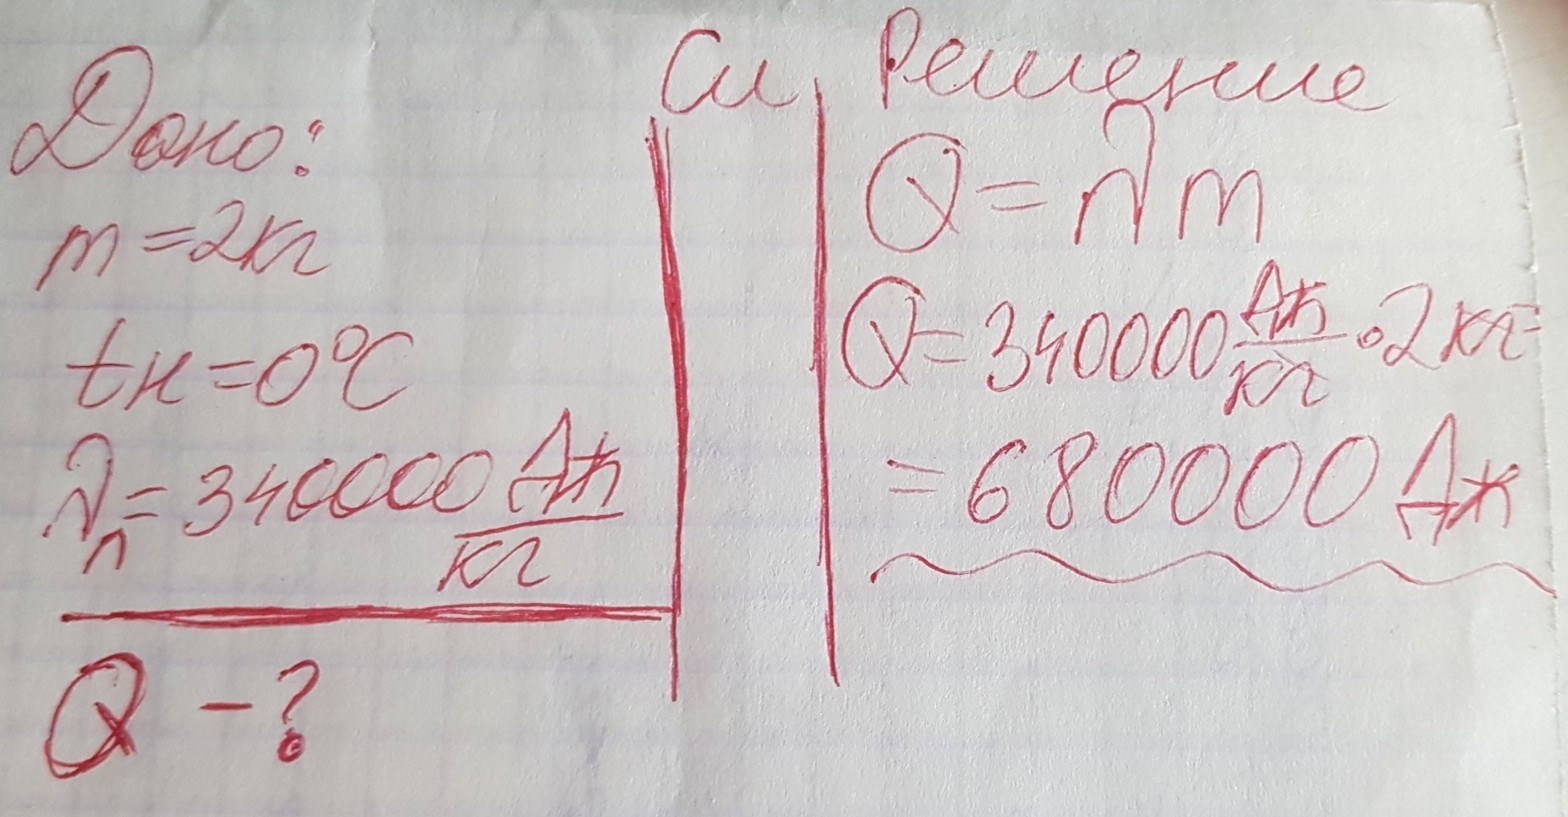 Дано:
m = 2кг
tн = 0°C
λл = 340000 Дж/кг
Q - ?
Си
Решение
Q = λm
Q = 340000 Дж/кг · 2кг =
= 680000 Дж